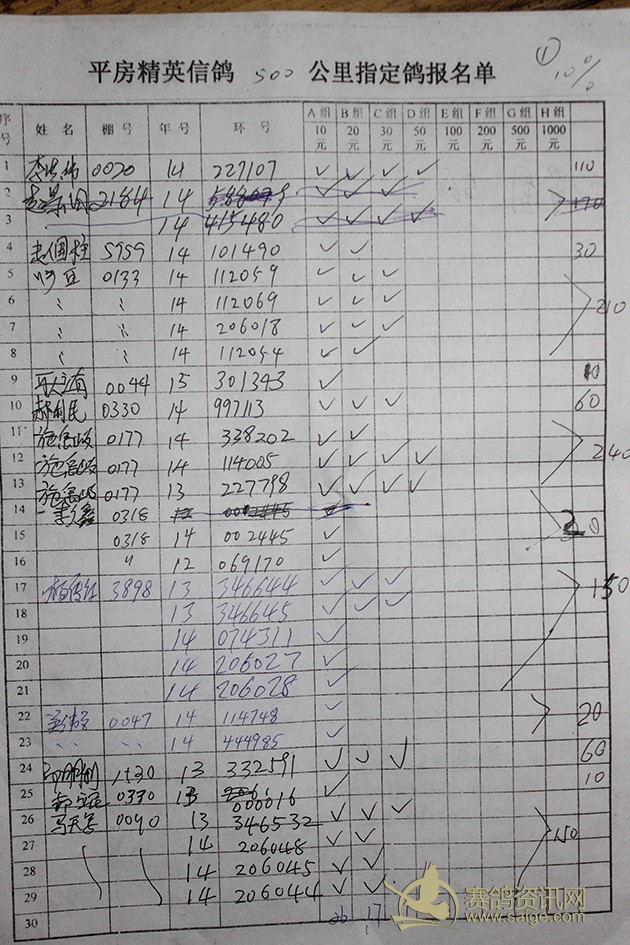 ① 10%
平房精英信鸽 500 公里指定鸽报名单
序号 姓名 棚号 年号 环号 A组10元 B组20元 C组30元 D组50元 E组100元 F组200元 G组500元 H组1000元
1 0020 14 227107 ✓ ✓ ✓ ✓ 110
2 2184 14 ✓ ✓ ✓ 170
3 14 415480 ✓ ✓ ✓ ✓
4 5959 14 101490 ✓ ✓ 30
5 0133 14 112059 ✓ ✓ ✓
6 〃 〃 14 112069 ✓ ✓ ✓ 210
7 〃 〃 14 206018 ✓ ✓ ✓
8 〃 〃 14 112054 ✓ ✓
9 0044 15 301343 ✓ 10
10 郝利民 0330 14 997113 ✓ ✓ ✓ 60
11 0177 14 338202 ✓ ✓
12 0177 14 114005 ✓ ✓ ✓ ✓ 240
13 0177 13 227798 ✓ ✓ ✓ ✓
14 0318 12 0002445 ✓
15 0318 14 002445 ✓ 20
16 〃 12 069170 ✓
17 3898 13 346644 ✓ ✓ ✓ 150
18 13 346645 ✓ ✓ ✓
19 14 074311 ✓
20 14 206027 ✓
21 14 206028 ✓
22 0047 14 114748 ✓ 20
23 〃 〃 14 444985 ✓
24 13 332591 ✓ ✓ ✓ 60
25 0330 13 000016 ✓ 10
26 0090 13 346532 ✓ ✓ ✓
27 14 206048 ✓ ✓ 150
28 14 206045 ✓ ✓
29 14 206044 ✓ ✓
30 17
赛鸽资讯网
www.saige.com